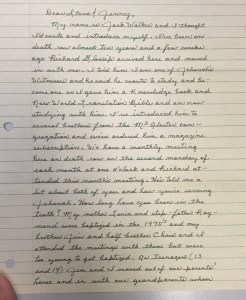 Dear Steve & Jenny,
My name is Jack Walker and I thought
I'd write and introduce myself. I've been on
death row almost ten years and a few weeks
ago Richard Glossip arrived here and moved
in with me. I told him I am one of Jehovah's
Witnesses and he said he wants to study and be-
come one so I gave him a Knowledge book and
New World Translation Bible and am now
studying with him. I've introduced him to
several brothers from the McAlester con-
gregation and we've ordered him a magazine
subscription. We have a monthly meeting
here on death row on the second Monday of
each month at one o'clock and Richard at-
tended this month's meeting. He told me a
lot about both of you and how you're serving
Jehovah. How long have you been in the
truth? My mother and step-father Ray-
mond were baptized in the 1970's and my
brother Jim and half brother Chris and I
attended the meetings with them but were
too young to get baptized. As teenagers (13
and 14) Jim and I moved out of our parents'
house and in with our grandparents whom